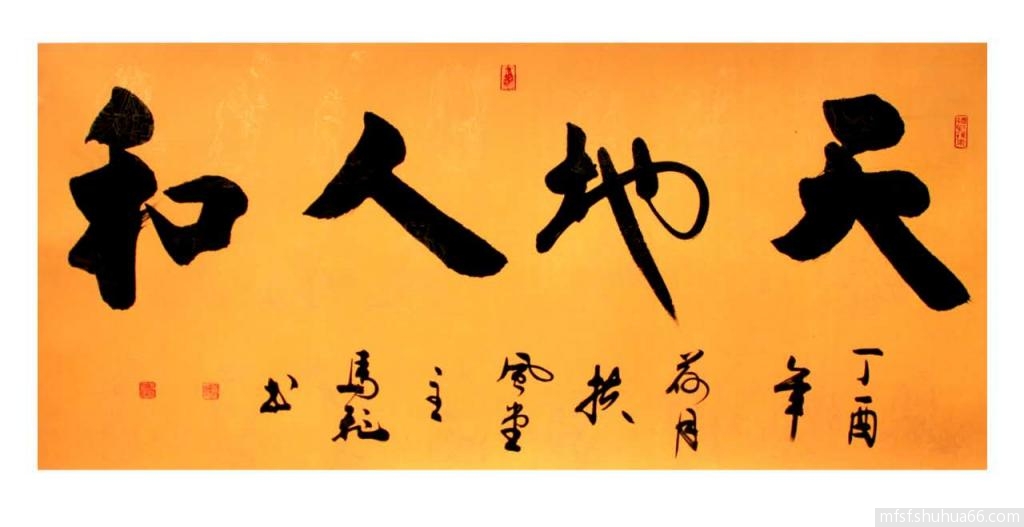 天地人和
丁酉年荷月扶風堂主馬书
mfsfshuhua66.com